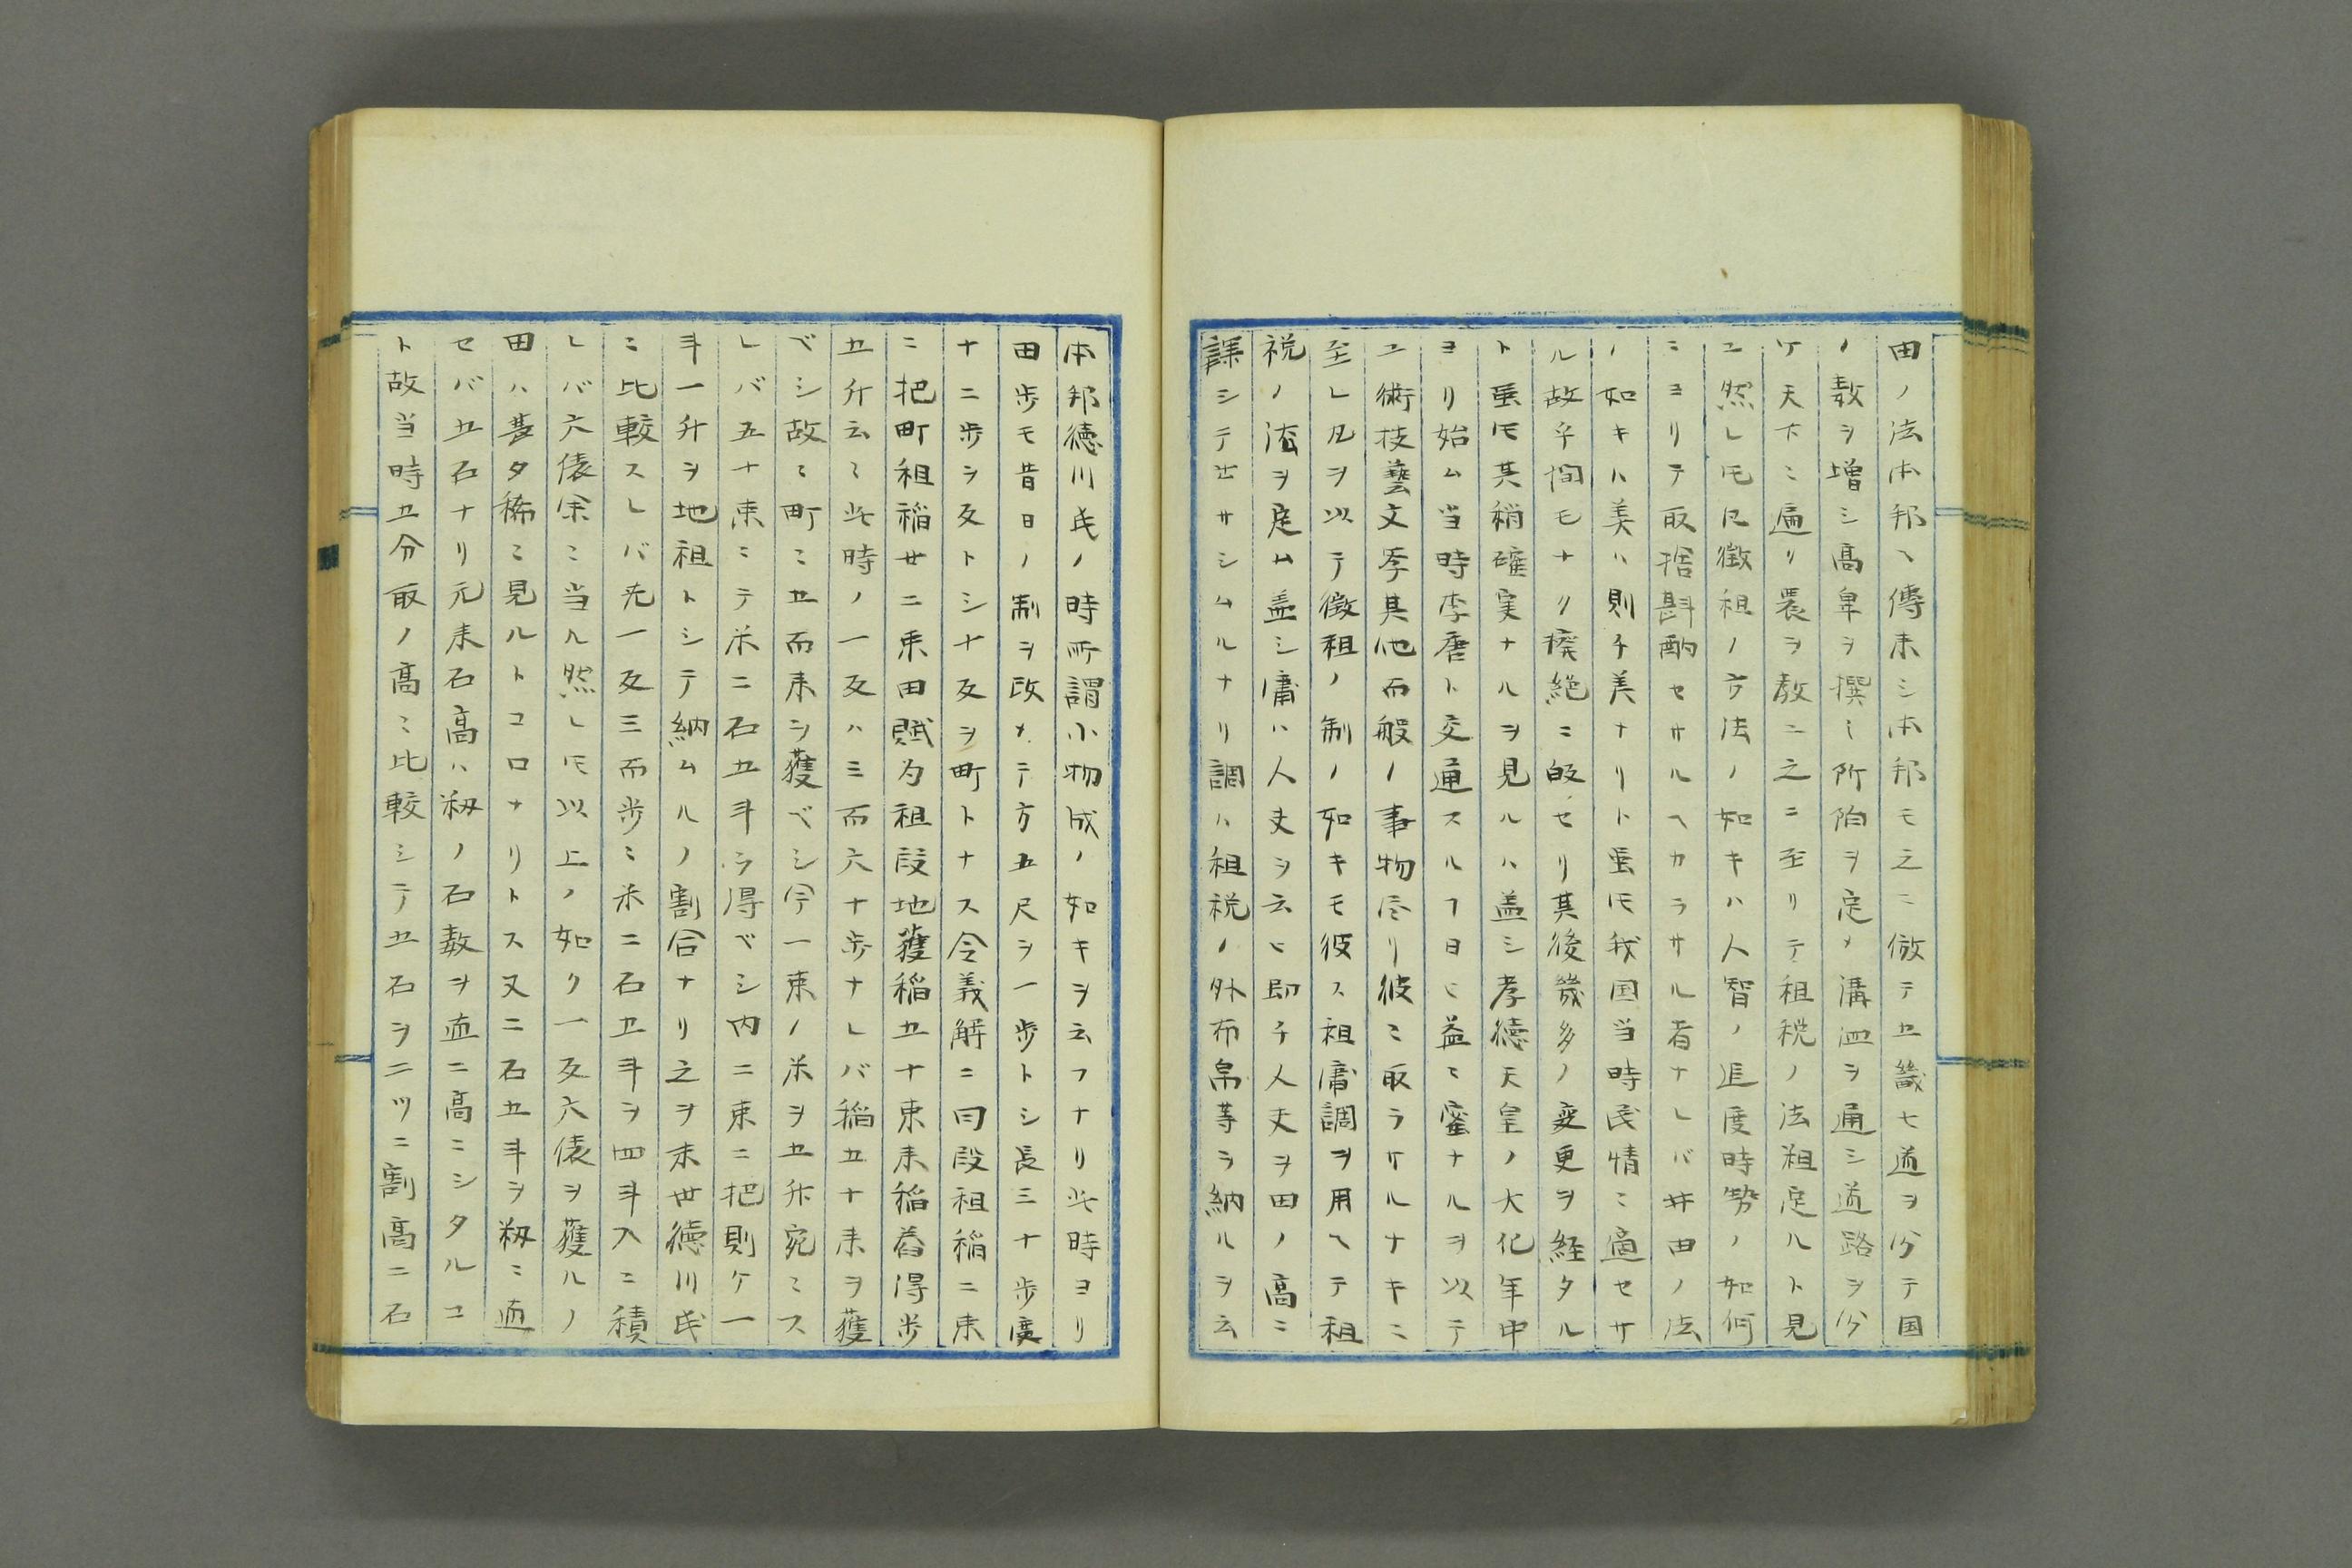 田ノ法本邦ヘ傳来シ本邦モ之ニ倣テ五畿七道ヲ分テ国
ノ数ヲ増シ髙卑ヲ撰ミ所陌ヲ定メ溝洫ヲ通シ道路ヲ分
ケ天下ニ遍リ農ヲ教ニ之ニ至リテ租税ノ法粗定ルト見
ユ然レ𪜈凡徴租ノ方法ノ如キハ人智ノ進度時勢ノ如何
ニヨリテ取捨斟酌セサルヘカラサル者ナレバ井田ノ法
ノ如キハ美ハ則チ美ナリト虽𪜈我国当時民情ニ適セサ
ル故乎間モナク癈絶ニ皈セリ其後幾多ノ変更ヲ経タル
ト虽𪜈其稍確実ナルヲ見ルハ盖シ孝徳天皇ノ大化年中
ヨリ始ム当時李唐ト交通スルヿ日ニ益ミ蜜ナルヲ以テ
ユ術技藝文学其他百般ノ事物尽リ彼ニ取ラサルナキニ
至レ凡ヲ以テ徴租ノ制ノ如キモ彼ス租庸調ヲ用ヘテ租
税ノ法ヲ定ム盖シ庸ハ人丈ヲ云ヒ即チ人夫ヲ田ノ高ニ
課シテ出サシムルナリ調ハ租税ノ外布帛等ヲ納ルヲ云
本邦徳川氏ノ時所謂小物成ノ如キヲ云フナリ此時ヨリ
田歩モ昔日ノ制ヲ改メテ方五尺ヲ一歩トシ長三十歩廣
十二歩ヲ反トシ十反ヲ町トナス令義解ニ曰段租稲二束
二把町租稲廿二束田賦为租段地獲稲五十束束稲舂得歩
五升云ミ此時ノ一反ハ三百六十歩ナレバ稲五十束ヲ獲
ベシ故ニ町ニ五百束ヲ獲ベシ今一束ノ米ヲ五升宛ニス
レバ五十束ニテ米二石五斗ヲ得ベシ内二束二把則ケ一
斗一升ヲ地租トシテ納ムルノ割合ナリ之ヲ末世徳川氏
ニ比較スレバ先一反三百歩ニ米二石五斗ヲ四斗入ニ積
レバ六俵余ニ当ル然レ𪜈以上ノ如ク一反六俵ヲ獲ルノ
田ハ甚タ稀ニ見ルトコロナリトス又二石五斗ヲ籾ニ直
セバ五石ナリ元来石高ハ籾ノ石数ヲ直ニ高ニシタルコ
ト故当時五分取ノ高ニ比較シテ五石ヲ二ツニ割高二石